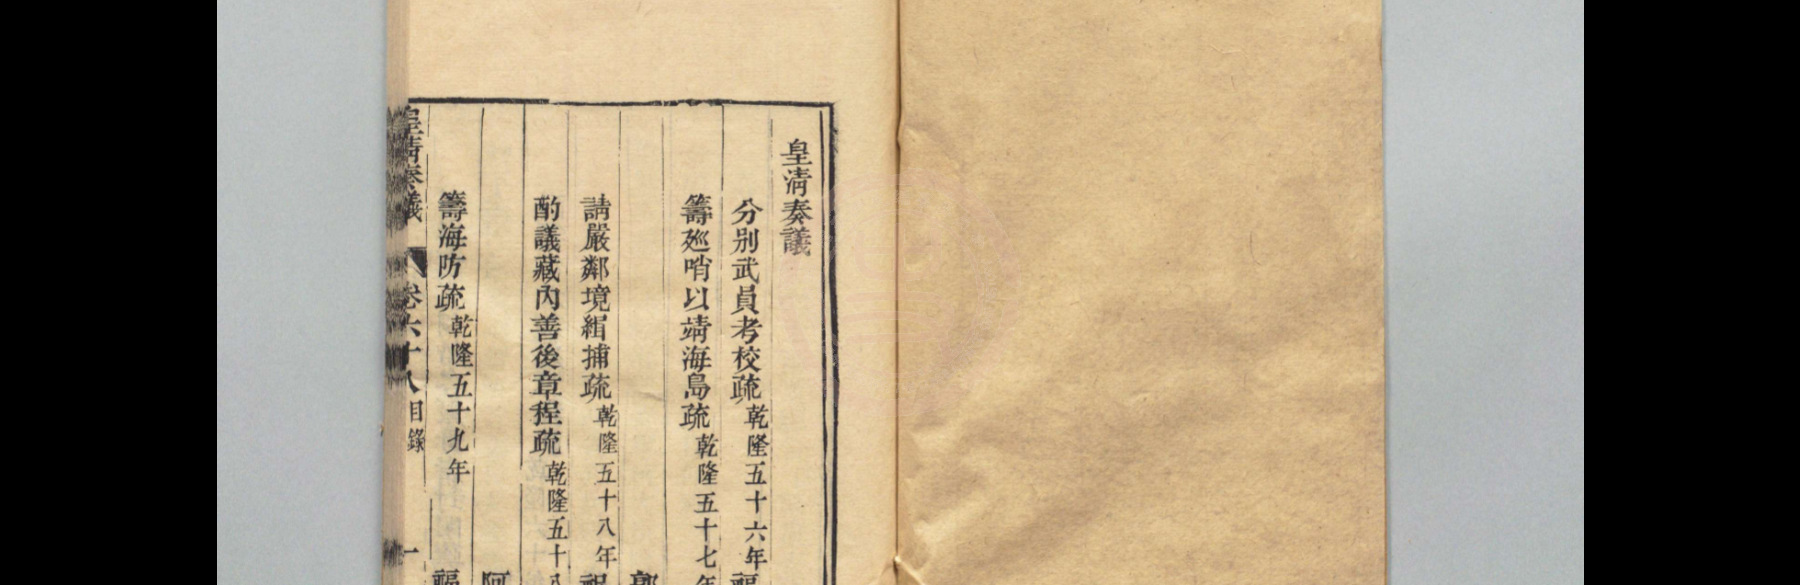 皇清奏議
分别武員考校疏乾隆五十六年
籌廵哨以靖海島疏乾隆五十七年
請嚴鄰境緝捕疏乾隆五十八年
酌議藏内善後章程疏乾隆五十八
阿
籌海防疏乾隆五十九年
皇清奏議 卷六十八目錄 一